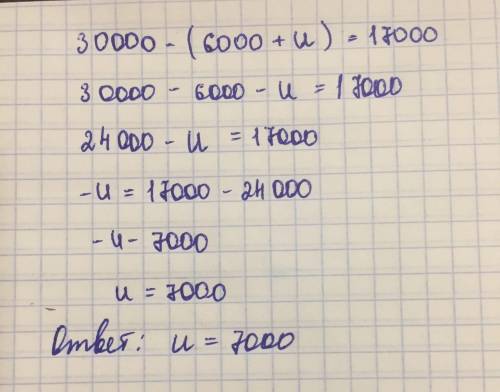 30000 - (6000 + u) = 17000
30000 - 6000 - u = 17000
24000 - u = 17000
-u = 17000 - 24000
-u - 7000
u = 7000
Ответ: u = 7000